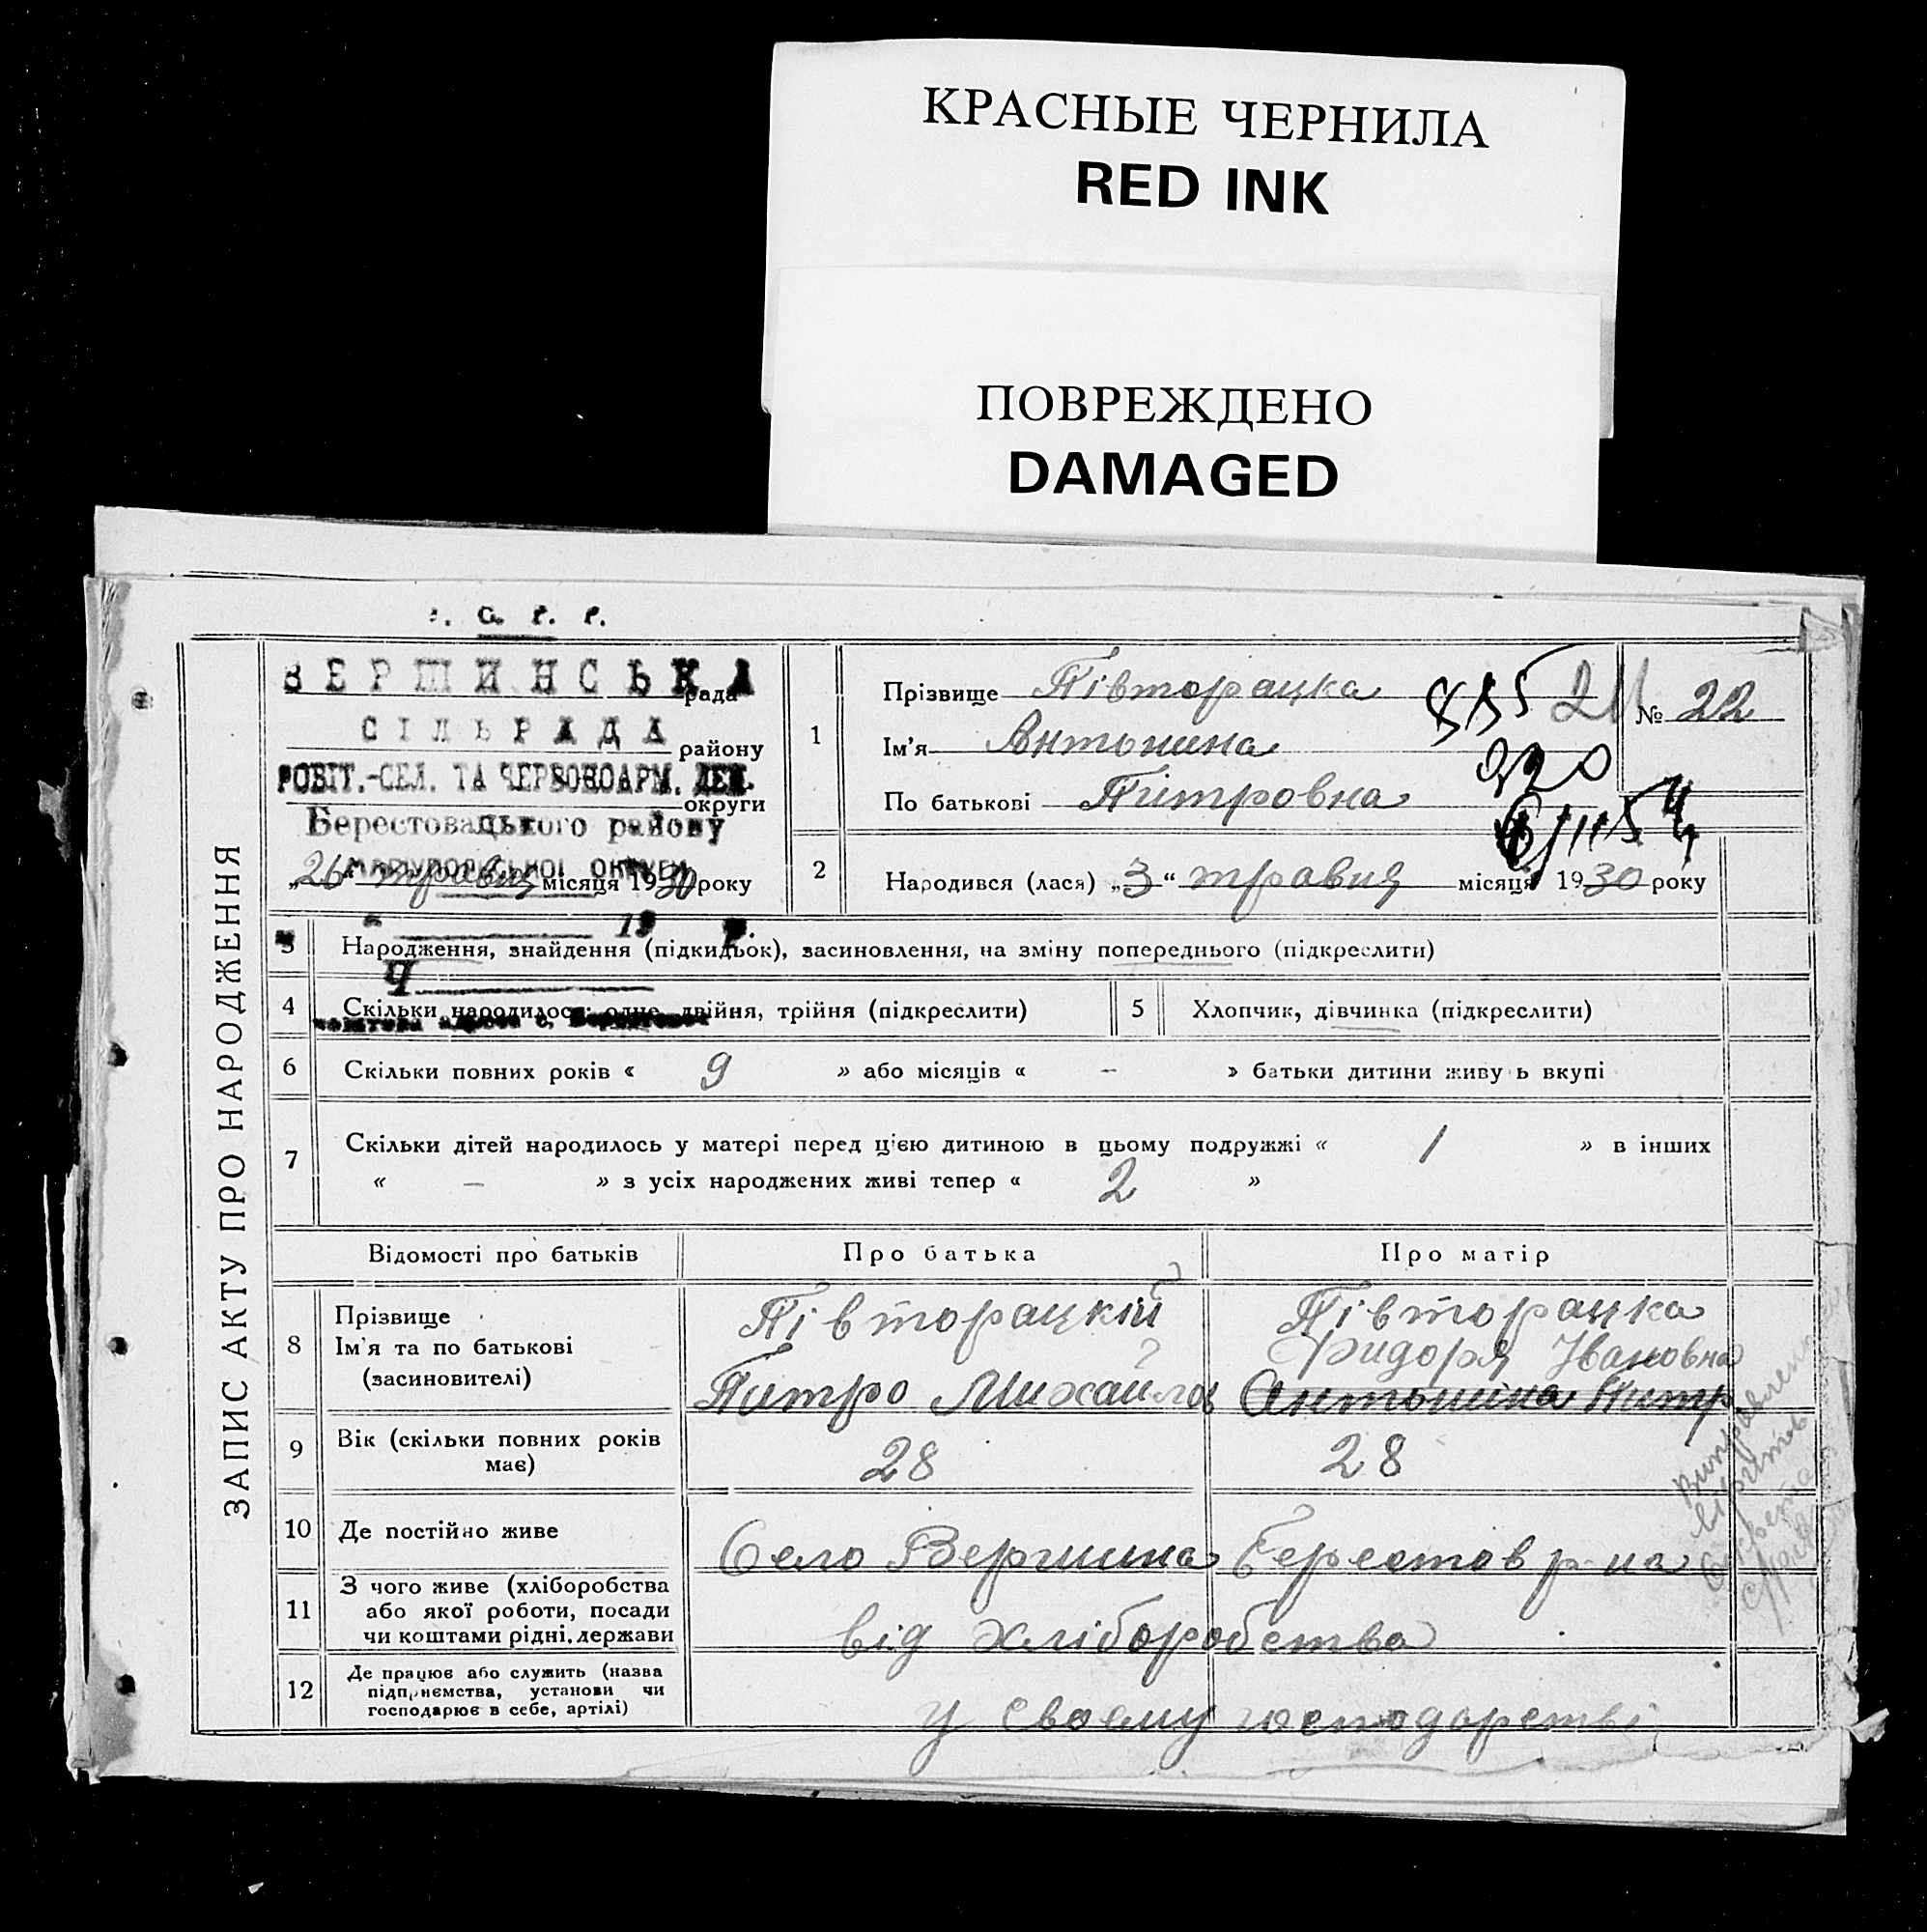 КРАСНЫЕ ЧЕРНИЛА
RED INK
ПОВРЕЖДЕНО
DAMAGED
С. Р. Р.
ЗАПИС АКТУ ПРО НАРОДЖЕННЯ
ВЕРШИНСЬКА рада
СІЛЬРАДА району
РОБІТ.-СЕЛ. ТА ЧЕРВОНОАРМ. ДЕП.
округи
Берестовацького району
МАРІУПОЛЬСЬКОЇ ОКРУГИ
„26“ травня місяця 1930 року
1
Прізвище Півторацка
Ім'я Антонина
По батькові Питровна
855 21
№ 22
220
2
Народився (лася) „3“ травня місяця 1930 року
19 р.
3 Народження, знайдення (підкидьок), засиновлення, на зміну попереднього (підкреслити)
Ч
4 Скільки народилось одне, двійня, трійня (підкреслити) 5 Хлопчик, дівчинка (підкреслити)
6 Скільки повних років « 9 » або місяців « – » батьки дитини живу ь вкупі
7 Скільки дітей народилось у матері перед цією дитиною в цьому подружжі « 1 » в інших
« – » з усіх народжених живі тепер « 2 »
Відомості про батьків Про батька Про матір
8 Прізвище
Ім'я та по батькові
(засиновителі)
Півторацкій
Питро Михайлов
Півторацка
Фидоря Івановна
Антонина Питр
9 Вік (скільки повних років має) 28 28
10 Де постійно живе Село Вершина Берестов р-на
11 З чого живе (хліборобства
або якої роботи, посади
чи коштами рідні, держави
від хліборобства
12 Де працює або служить (назва
підприємства, установи чи
господарює в себе, артілі)
у своєму господарстві